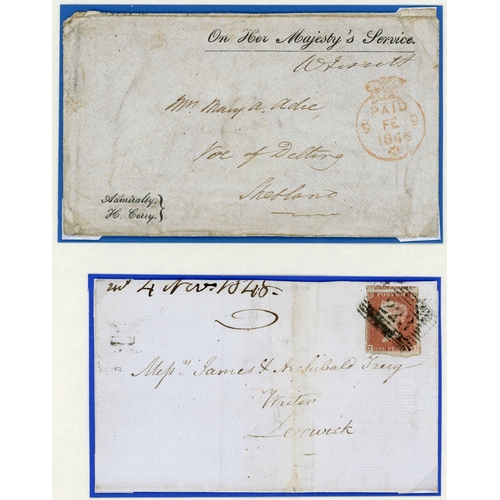 On Her Majesty's Service.
PAID
FE
1846
Mrs Mary A. Adie,
Voe of Delting
Shetland
Admiralty,
H. Corry.
4 Novr. 1848.
Messrs James & Archibald Greig
Writers
Lerwick